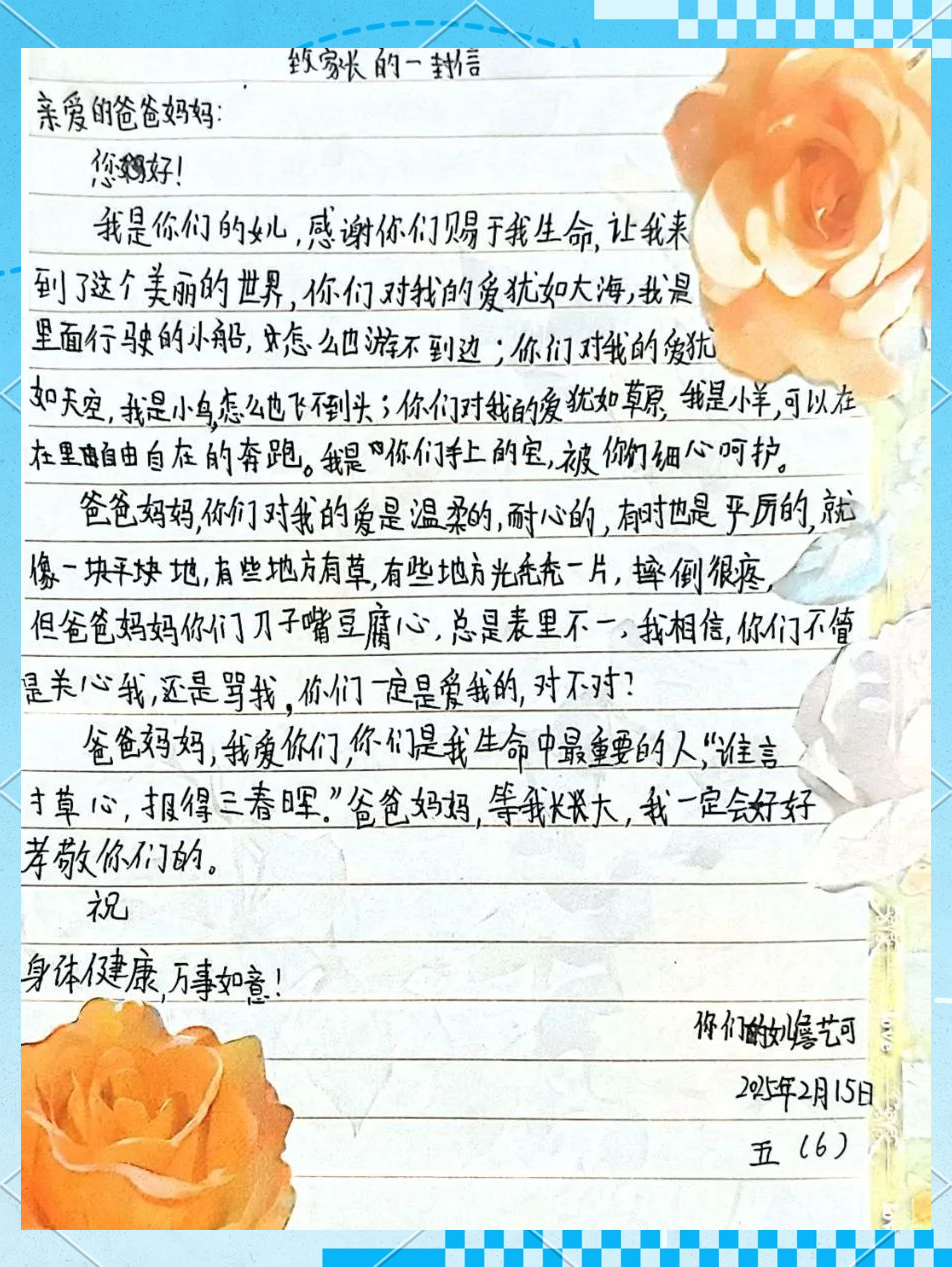 致家长的一封信
亲爱的爸爸妈妈:
您好!
我是你们的女儿,感谢你们赐于我生命,让我来
到了这个美丽的世界,你们对我的爱犹如大海,我是
里面行驶的小船,怎么也游不到边;你们对我的爱犹
如天空,我是小鸟,怎么也飞不到头;你们对我的爱犹如草原,我是小羊,可以在
在里自由自在的奔跑。我是你们手上的宝,被你们细心呵护。
爸爸妈妈,你们对我的爱是温柔的,耐心的,有时也是平厉的,就
像一块平块地,有些地方有草,有些地方光秃秃一片,摔倒很疼,
但爸爸妈妈你们刀子嘴豆腐心,总是表里不一。我相信,你们不管
是关心我,还是骂我,你们一定是爱我的,对不对?
爸爸妈妈,我爱你们,你们是我生命中最重要的人,“谁言
寸草心,报得三春晖。”爸爸妈妈,等我长大,我一定会好好
孝敬你们的。
祝
身体健康,万事如意!
你们的女儿艺可
2025年2月15日
五(6)
love